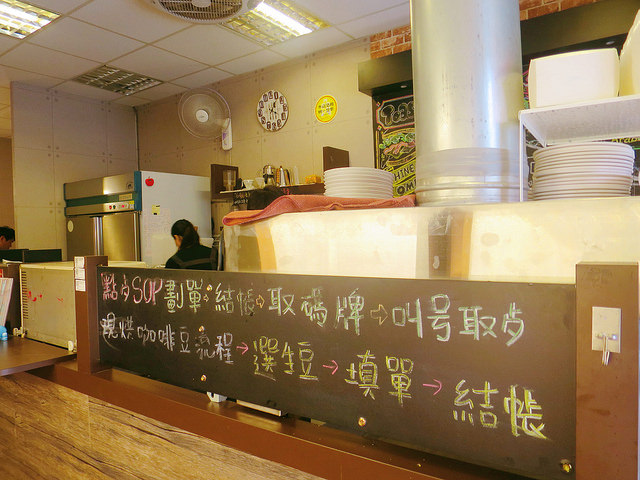 點歺SOP劃單⇨結帳⇨取碼牌⇨叫号取歺
現烘咖啡豆流程→選生豆→填單→結帳